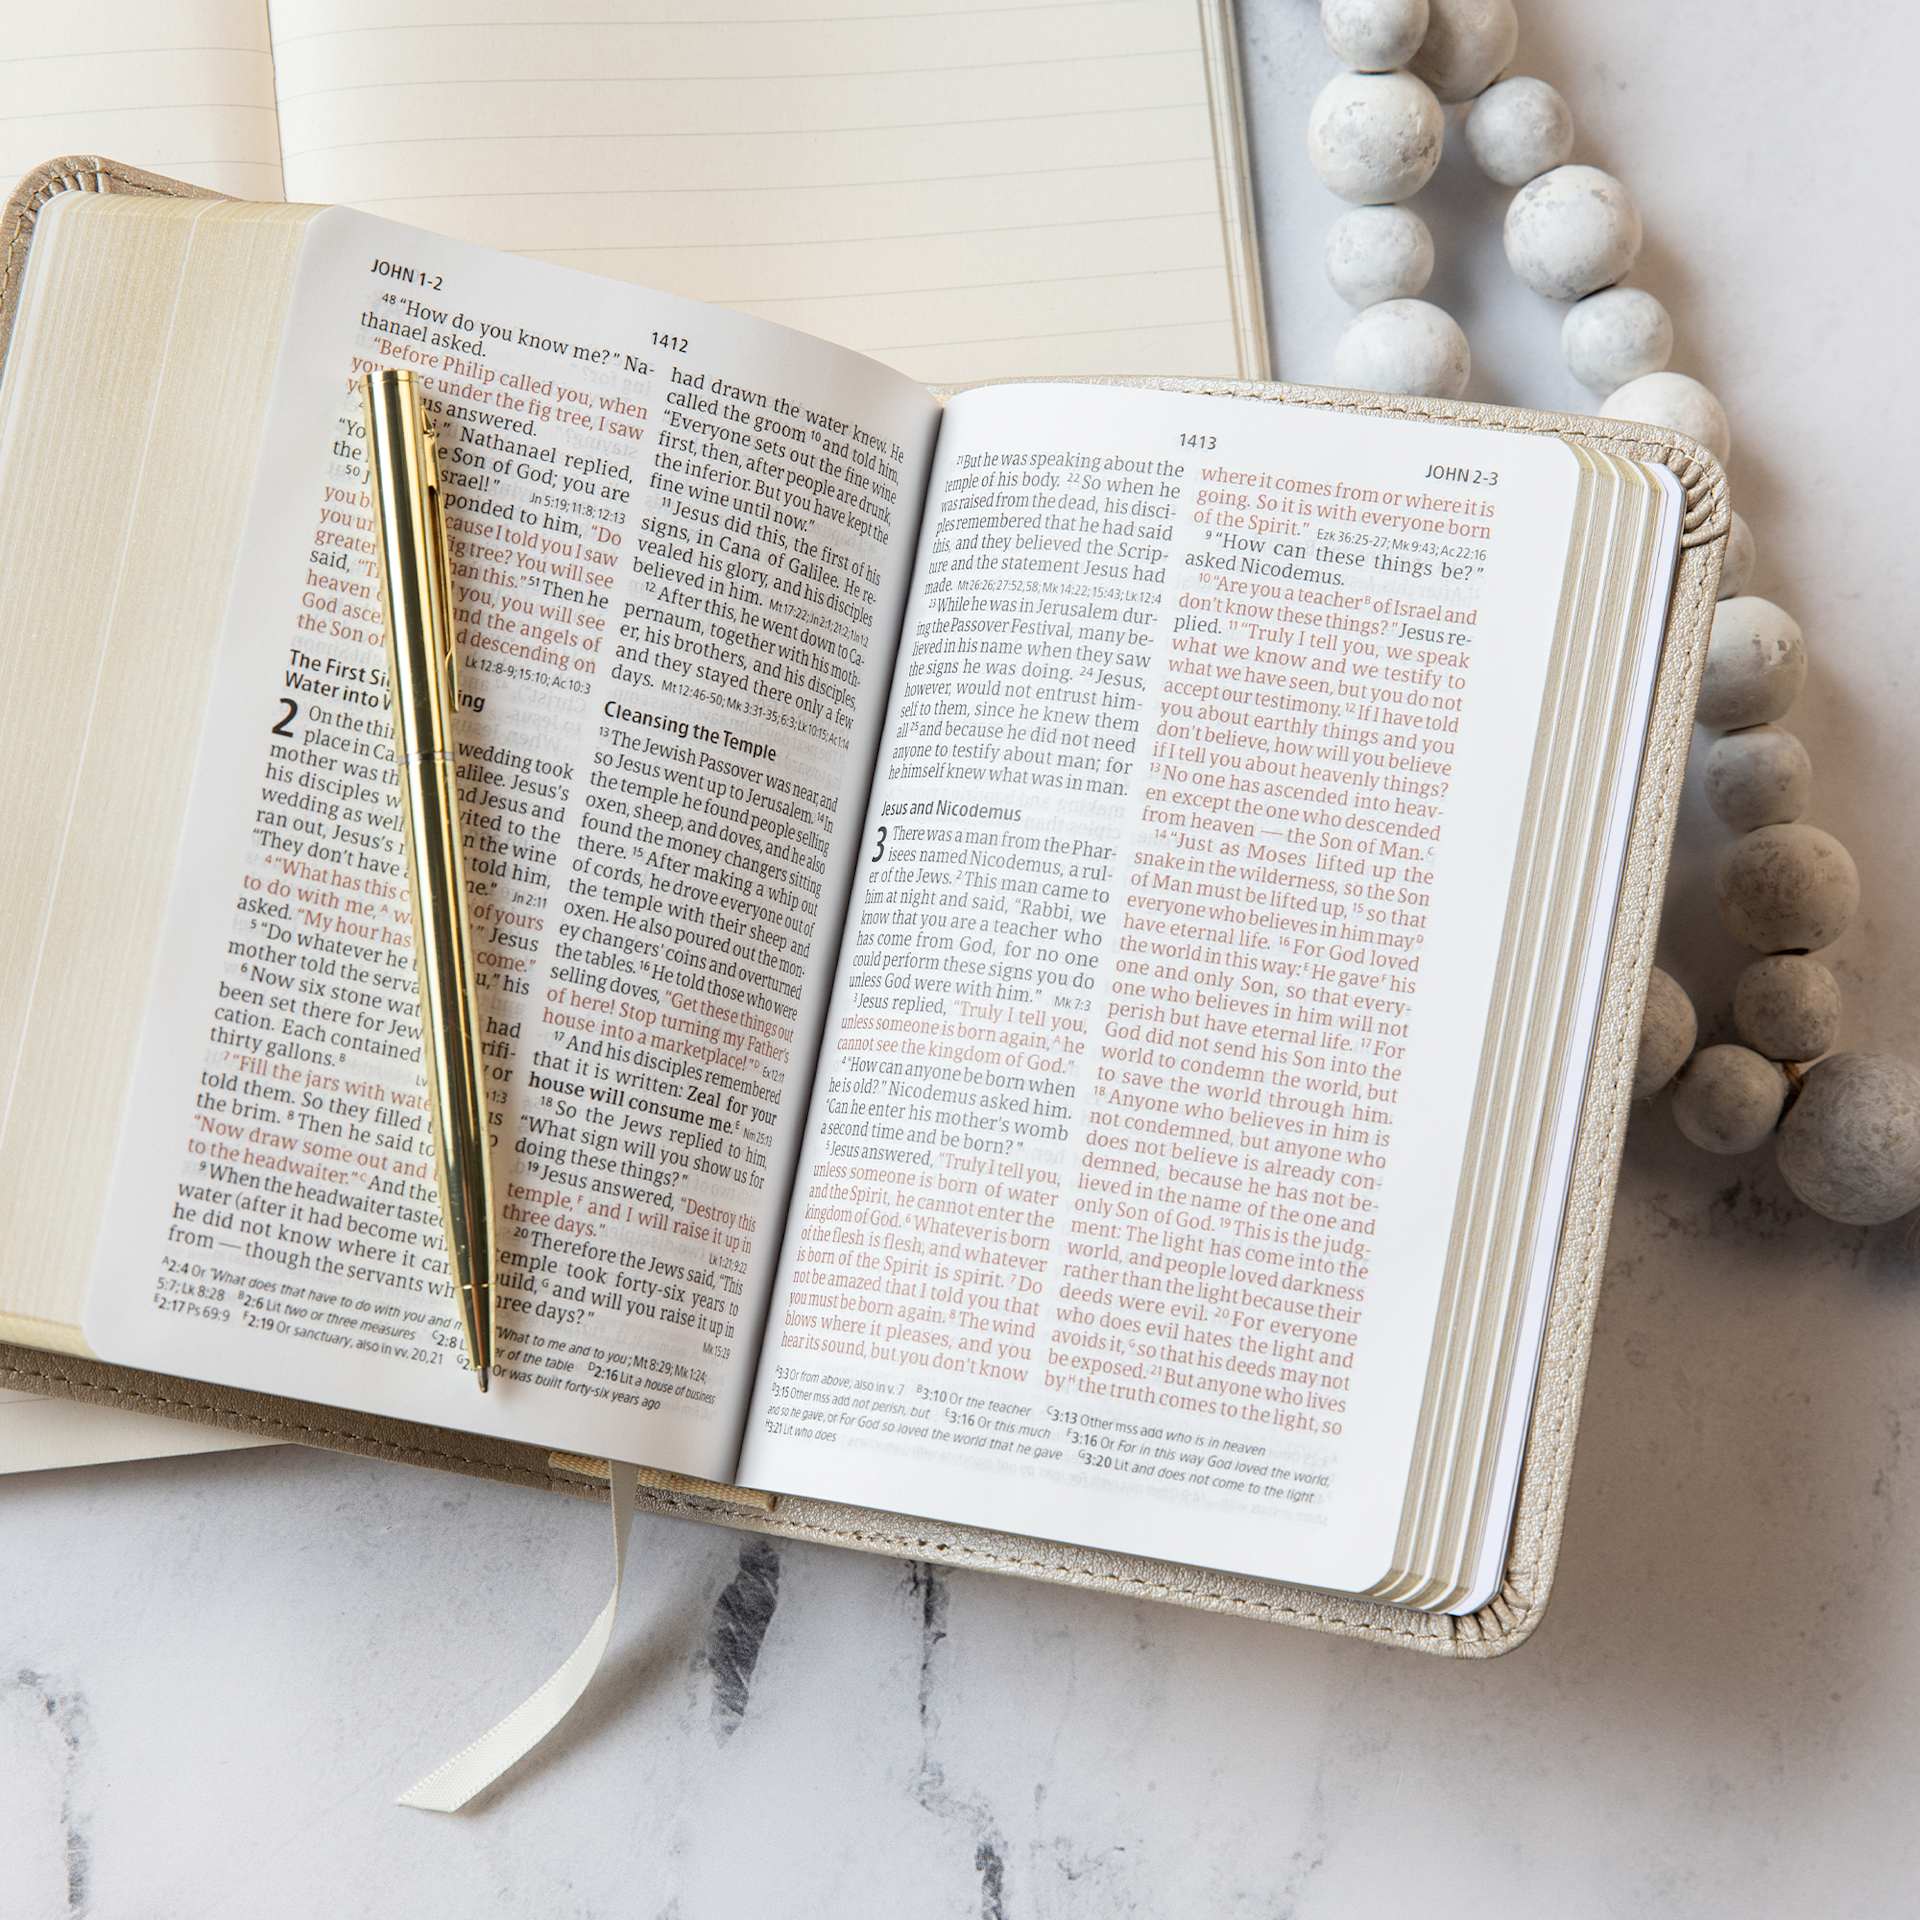 JOHN 1-2
1412
48 “How do you know me?” Na-
thanael asked.
“Before Philip called you, when
you re under the fig tree, I saw
us answered.
Nathanael replied,
“Yo e Son of God; you are
the srael!” Jn 5:19; 11:8; 12:13
50 ponded to him, “Do
you b cause I told you I saw
you un fig tree? You will see
greater han this.” 51 Then he
said, “T you, you will see
heaven and the angels of
God asce d descending on
the Son of Lk 12:8-9; 15:10; Ac 10:3
The First Si
Water into W ing
2 On the thi wedding took
place in Ca alilee. Jesus’s
mother was th nd Jesus and
his disciples w vited to the
wedding as well n the wine
ran out, Jesus’s told him,
“They don’t have ne.” Jn 2:11
4 “What has this c of yours
to do with me,A w ” Jesus
asked. “My hour has come.”
5 “Do whatever he t u,” his
mother told the serva
6 Now six stone wat had
been set there for Jew rifi-
cation. Each contained or
thirty gallons.B
7 “Fill the jars with wate us
told them. So they filled
the brim. 8 Then he said to
“Now draw some out and
to the headwaiter.”C And the
9 When the headwaiter tasted
water (after it had become wi
he did not know where it cam
from — though the servants wh
had drawn the water knew. He
called the groom 10 and told him,
“Everyone sets out the fine wine
first, then, after people are drunk,
the inferior. But you have kept the
fine wine until now.”
11 Jesus did this, the first of his
signs, in Cana of Galilee. He re-
vealed his glory, and his disciples
believed in him. Mt 17:22; Jn 2:1; 21:2; 1Jn 1:2
12 After this, he went down to Ca-
pernaum, together with his moth-
er, his brothers, and his disciples,
and they stayed there only a few
days. Mt 12:46-50; Mk 3:31-35; 6:3; Lk 10:15; Ac 1:14
Cleansing the Temple
13 The Jewish Passover was near, and
so Jesus went up to Jerusalem. 14 In
the temple he found people selling
oxen, sheep, and doves, and he also
found the money changers sitting
there. 15 After making a whip out
of cords, he drove everyone out of
the temple with their sheep and
oxen. He also poured out the mon-
ey changers’ coins and overturned
the tables. 16 He told those who were
selling doves, “Get these things out
of here! Stop turning my Father’s
house into a marketplace!”D Ex 12:11
17 And his disciples remembered
that it is written: Zeal for your
house will consume me.E Nm 25:13
18 So the Jews replied to him,
“What sign will you show us for
doing these things?”
19 Jesus answered, “Destroy this
temple,F and I will raise it up in
three days.” Lk 1:21; 9:22
20 Therefore the Jews said, “This
temple took forty-six years to
build,G and will you raise it up in
three days?” Mk 15:29
A2:4 Or “What does that have to do with you and m “What to me and to you; Mt 8:29; Mk 1:24;
5:7; Lk 8:28 B2:6 Lit two or three measures C2:8 L er of the table D2:16 Lit a house of business
E2:17 Ps 69:9 F2:19 Or sanctuary, also in vv. 20,21 G2: Or was built forty-six years ago
1413
JOHN 2-3
21 But he was speaking about the
temple of his body. 22 So when he
was raised from the dead, his disci-
ples remembered that he had said
this, and they believed the Scrip-
ture and the statement Jesus had
made. Mt 26:26; 27:52,58; Mk 14:22; 15:43; Lk 12:4
23 While he was in Jerusalem dur-
ing the Passover Festival, many be-
lieved in his name when they saw
the signs he was doing. 24 Jesus,
however, would not entrust him-
self to them, since he knew them
all 25 and because he did not need
anyone to testify about man; for
he himself knew what was in man.
Jesus and Nicodemus
3 There was a man from the Phar-
isees named Nicodemus, a rul-
er of the Jews. 2 This man came to
him at night and said, “Rabbi, we
know that you are a teacher who
has come from God, for no one
could perform these signs you do
unless God were with him.” Mk 7:3
3 Jesus replied, “Truly I tell you,
unless someone is born again,A he
cannot see the kingdom of God.”
4 “How can anyone be born when
he is old?” Nicodemus asked him.
“Can he enter his mother’s womb
a second time and be born?”
5 Jesus answered, “Truly I tell you,
unless someone is born of water
and the Spirit, he cannot enter the
kingdom of God. 6 Whatever is born
of the flesh is flesh, and whatever
is born of the Spirit is spirit. 7 Do
not be amazed that I told you that
you must be born again. 8 The wind
blows where it pleases, and you
hear its sound, but you don’t know
where it comes from or where it is
going. So it is with everyone born
of the Spirit.” Ezk 36:25-27; Mk 9:43; Ac 22:16
9 “How can these things be?”
asked Nicodemus.
10 “Are you a teacherB of Israel and
don’t know these things?” Jesus re-
plied. 11 “Truly I tell you, we speak
what we know and we testify to
what we have seen, but you do not
accept our testimony. 12 If I have told
you about earthly things and you
don’t believe, how will you believe
if I tell you about heavenly things?
13 No one has ascended into heav-
en except the one who descended
from heaven — the Son of Man.C
14 “Just as Moses lifted up the
snake in the wilderness, so the Son
of Man must be lifted up, 15 so that
everyone who believes in him mayD
have eternal life. 16 For God loved
the world in this way:E He gaveF his
one and only Son, so that every-
one who believes in him will not
perish but have eternal life. 17 For
God did not send his Son into the
world to condemn the world, but
to save the world through him.
18 Anyone who believes in him is
not condemned, but anyone who
does not believe is already con-
demned, because he has not be-
lieved in the name of the one and
only Son of God. 19 This is the judg-
ment: The light has come into the
world, and people loved darkness
rather than the light because their
deeds were evil. 20 For everyone
who does evil hates the light and
avoids it,G so that his deeds may not
be exposed. 21 But anyone who lives
byH the truth comes to the light, so
A3:3 Or from above, also in v. 7 B3:10 Or the teacher C3:13 Other mss add who is in heaven
D3:15 Other mss add not perish, but E3:16 Or this much F3:16 Or For in this way God loved the world,
and so he gave, or For God so loved the world that he gave G3:20 Lit and does not come to the light
H3:21 Lit who does